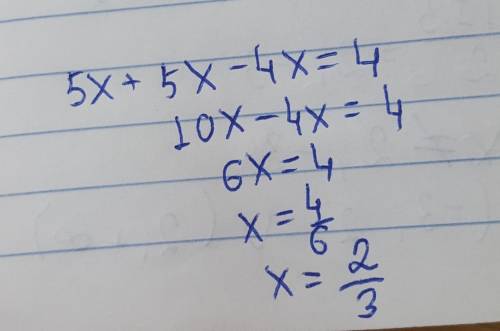 5x + 5x - 4x = 4
10x - 4x = 4
6x = 4
x = 4/6
x = 2/3